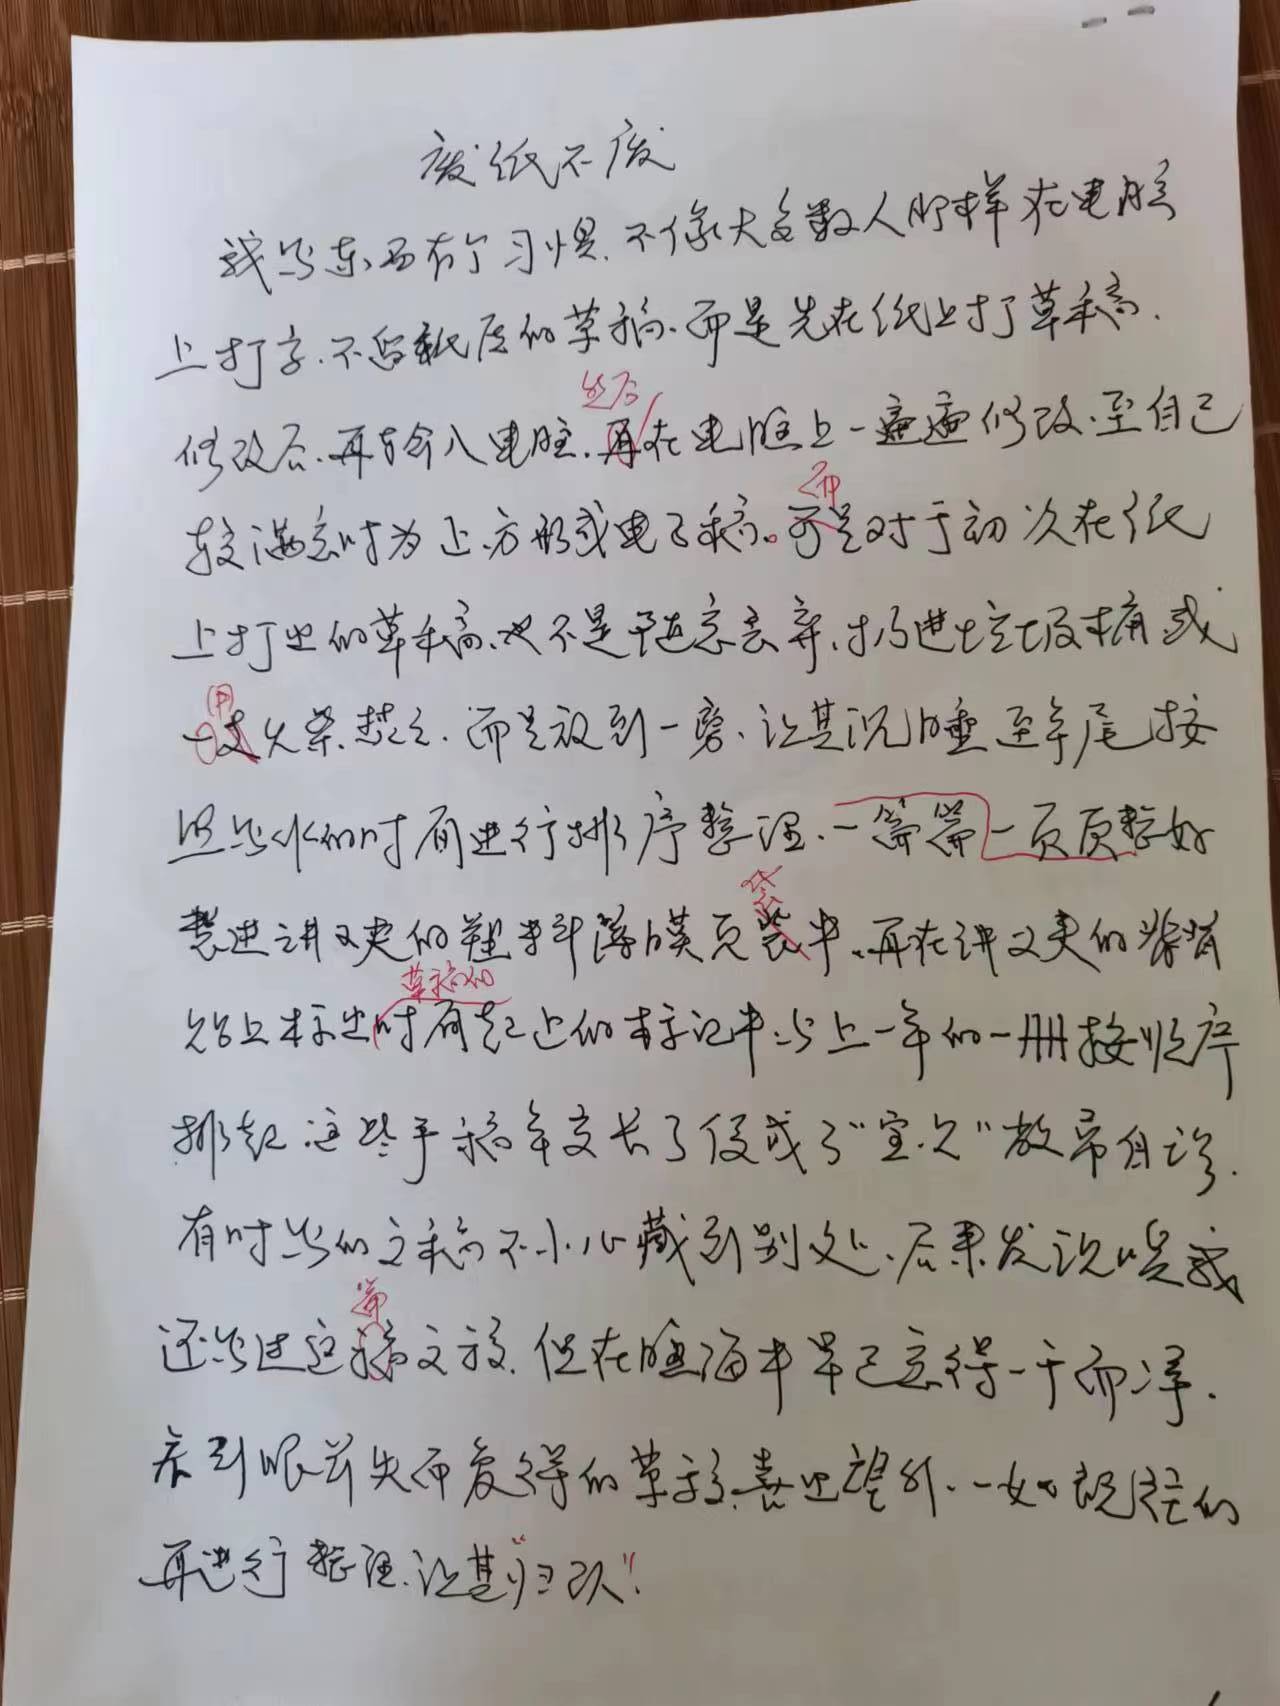 废纸不废
我写东西有个习惯,不像大多数人那样在电脑
上打字,不留纸质的草稿,而是先在纸上打草稿,
然后
修改后,再输入电脑,再在电脑上一遍遍修改,至自己
而
较满意时为止,方形成电子稿。可是对于初次在纸
上打出的草稿,也不是随意丢弃,扔进垃圾桶或
用
一支火柴焚之,而是放到一旁,让其沉睡至年尾按
照写作的时间进行排序整理,一篇篇一页页整好
袋
装进讲义夹的塑料薄膜页装中,再在讲义夹的
草稿的
上标出时间起止的标记中,与上一年的一册按顺序
排起,这些手稿年交长了便成了“宝贝”敝帚自珍,
有时写的文稿不小心藏到别处,后来发现嗯我
篇
还写过这稿文章,但在脑海中早已忘得一干而净,
看到眼前失而复得的草稿,喜出望外,一如既往的
再进行整理,让其“归队”!